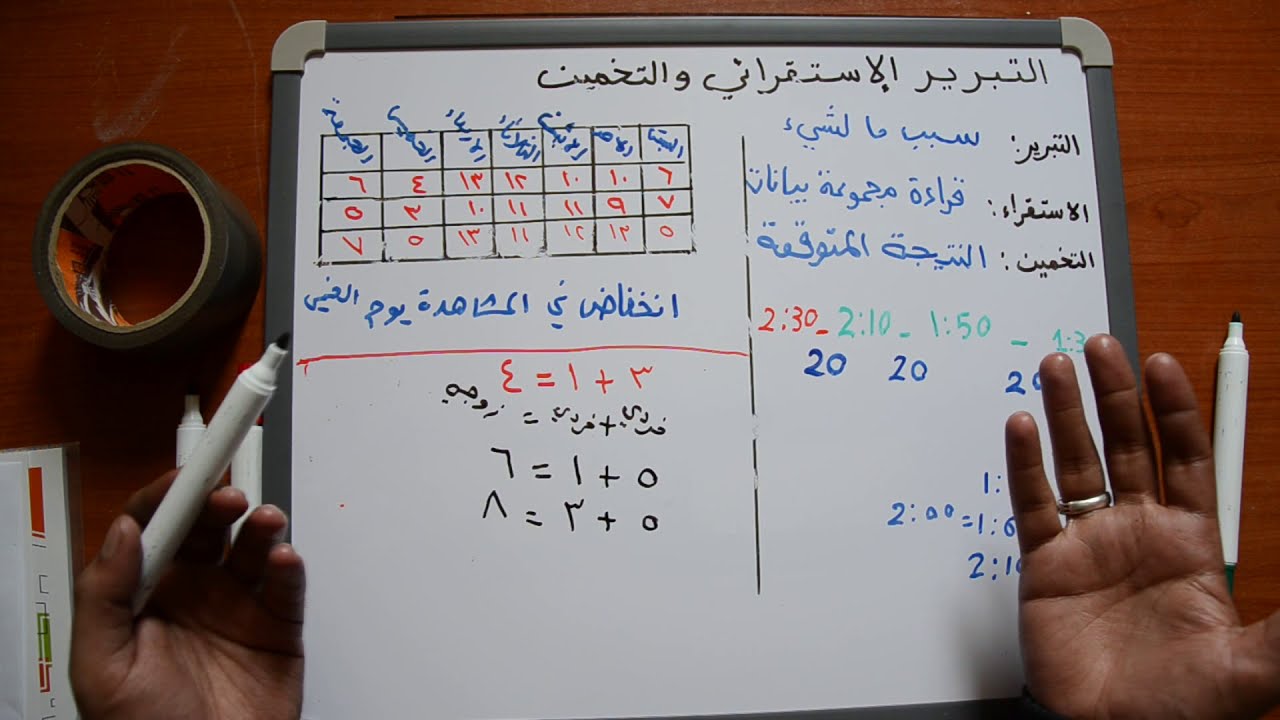 التبرير الإستقرائي والتخمين
التبرير: سبب ما لشيء
الاستقراء: قراءة مجموعة بيانات
التخمين: النتيجة المتوقعة
2:30 - 2:10 - 1:50 -
20 20
2:00 =
السبت الأحد الاثنين الثلاثاء الأربعاء الخميس الجمعة
٦ ١٠ ١٠ ١٢ ١٣ ٤ ٦
٧ ٩ ١١ ١١ ١٠ ٣ ٥
٥ ١٢ ١٢ ١١ ١٣ ٥ ٧
انخفاض في المشاهدة يوم الخميس
٣ + ١ = ٤
فردي + فردي = زوجي
٥ + ١ = ٦
٥ + ٣ = ٨